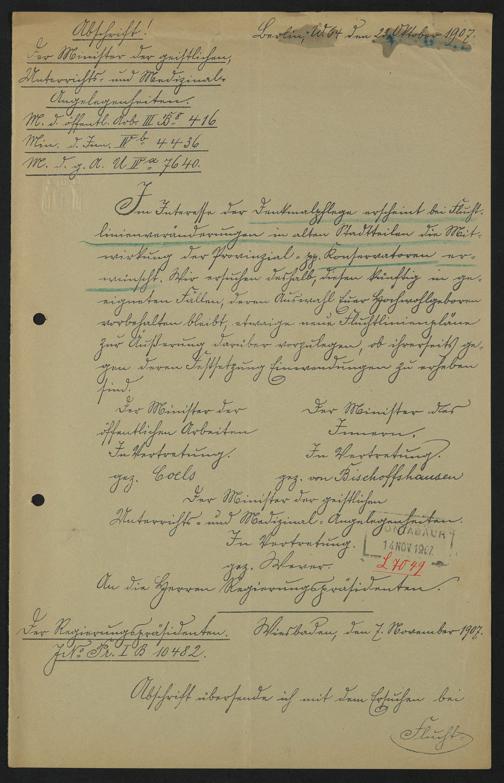 Abschrift!
Berlin, W 64 den 22. Oktober 1907.
Der Minister der geistlichen,
Unterrichts- und Medizinal-
Angelegenheiten.
M. d. öffentl. Arb. III B 8 416
Min. d. Inn. IV b 4436
M. d. g. A. U IV a 7640.
Im Interesse der Denkmalpflege erscheint bei Flucht-
linienveränderungen in alten Stadtteilen die Mit-
wirkung der Provinzial- pp. Konservatoren er-
wünscht. Wir ersuchen deshalb, diesen künftig in ge-
eigneten Fällen, deren Auswahl Euer Hochwohlgeboren
vorbehalten bleibt, etwaige neue Fluchtlinienpläne
zur Äußerung darüber vorzulegen, ob ihrerseits ge-
gen deren Festsetzung Einwendungen zu erheben
sind.
Der Minister der
öffentlichen Arbeiten
In Vertretung.
gez. Coels
Der Minister des
Innern.
In Vertretung.
gez. von Bischoffshausen
Der Minister der geistlichen
Unterrichts- und Medizinal-Angelegenheiten.
In Vertretung.
gez. Wever.
MONTABAUR
14 NOV 1907
L 7049
An die Herren Regierungspräsidenten.
Der Regierungspräsidenten.
Wiesbaden, den 7. November 1907.
J No Pr. I B 10482.
Abschrift übersende ich mit dem Ersuchen bei
Flucht-